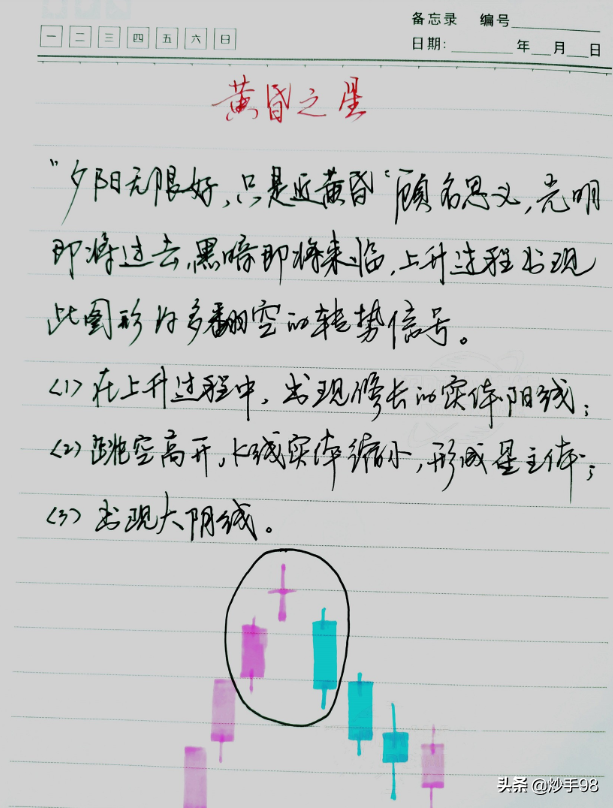 备忘录 编号
一 二 三 四 五 六 日
日期: 年 月 日
黄昏之星
"夕阳无限好,只是近黄昏"顾名思义,光明
即将过去,黑暗即将来临,上升过程出现
此图形为多翻空的转势信号。
(1)在上升过程中,出现修长的实体阳线;
(2)跳空高开,K线实体缩小,形成星主体;
(3)出现大阴线。
头条 @炒手98